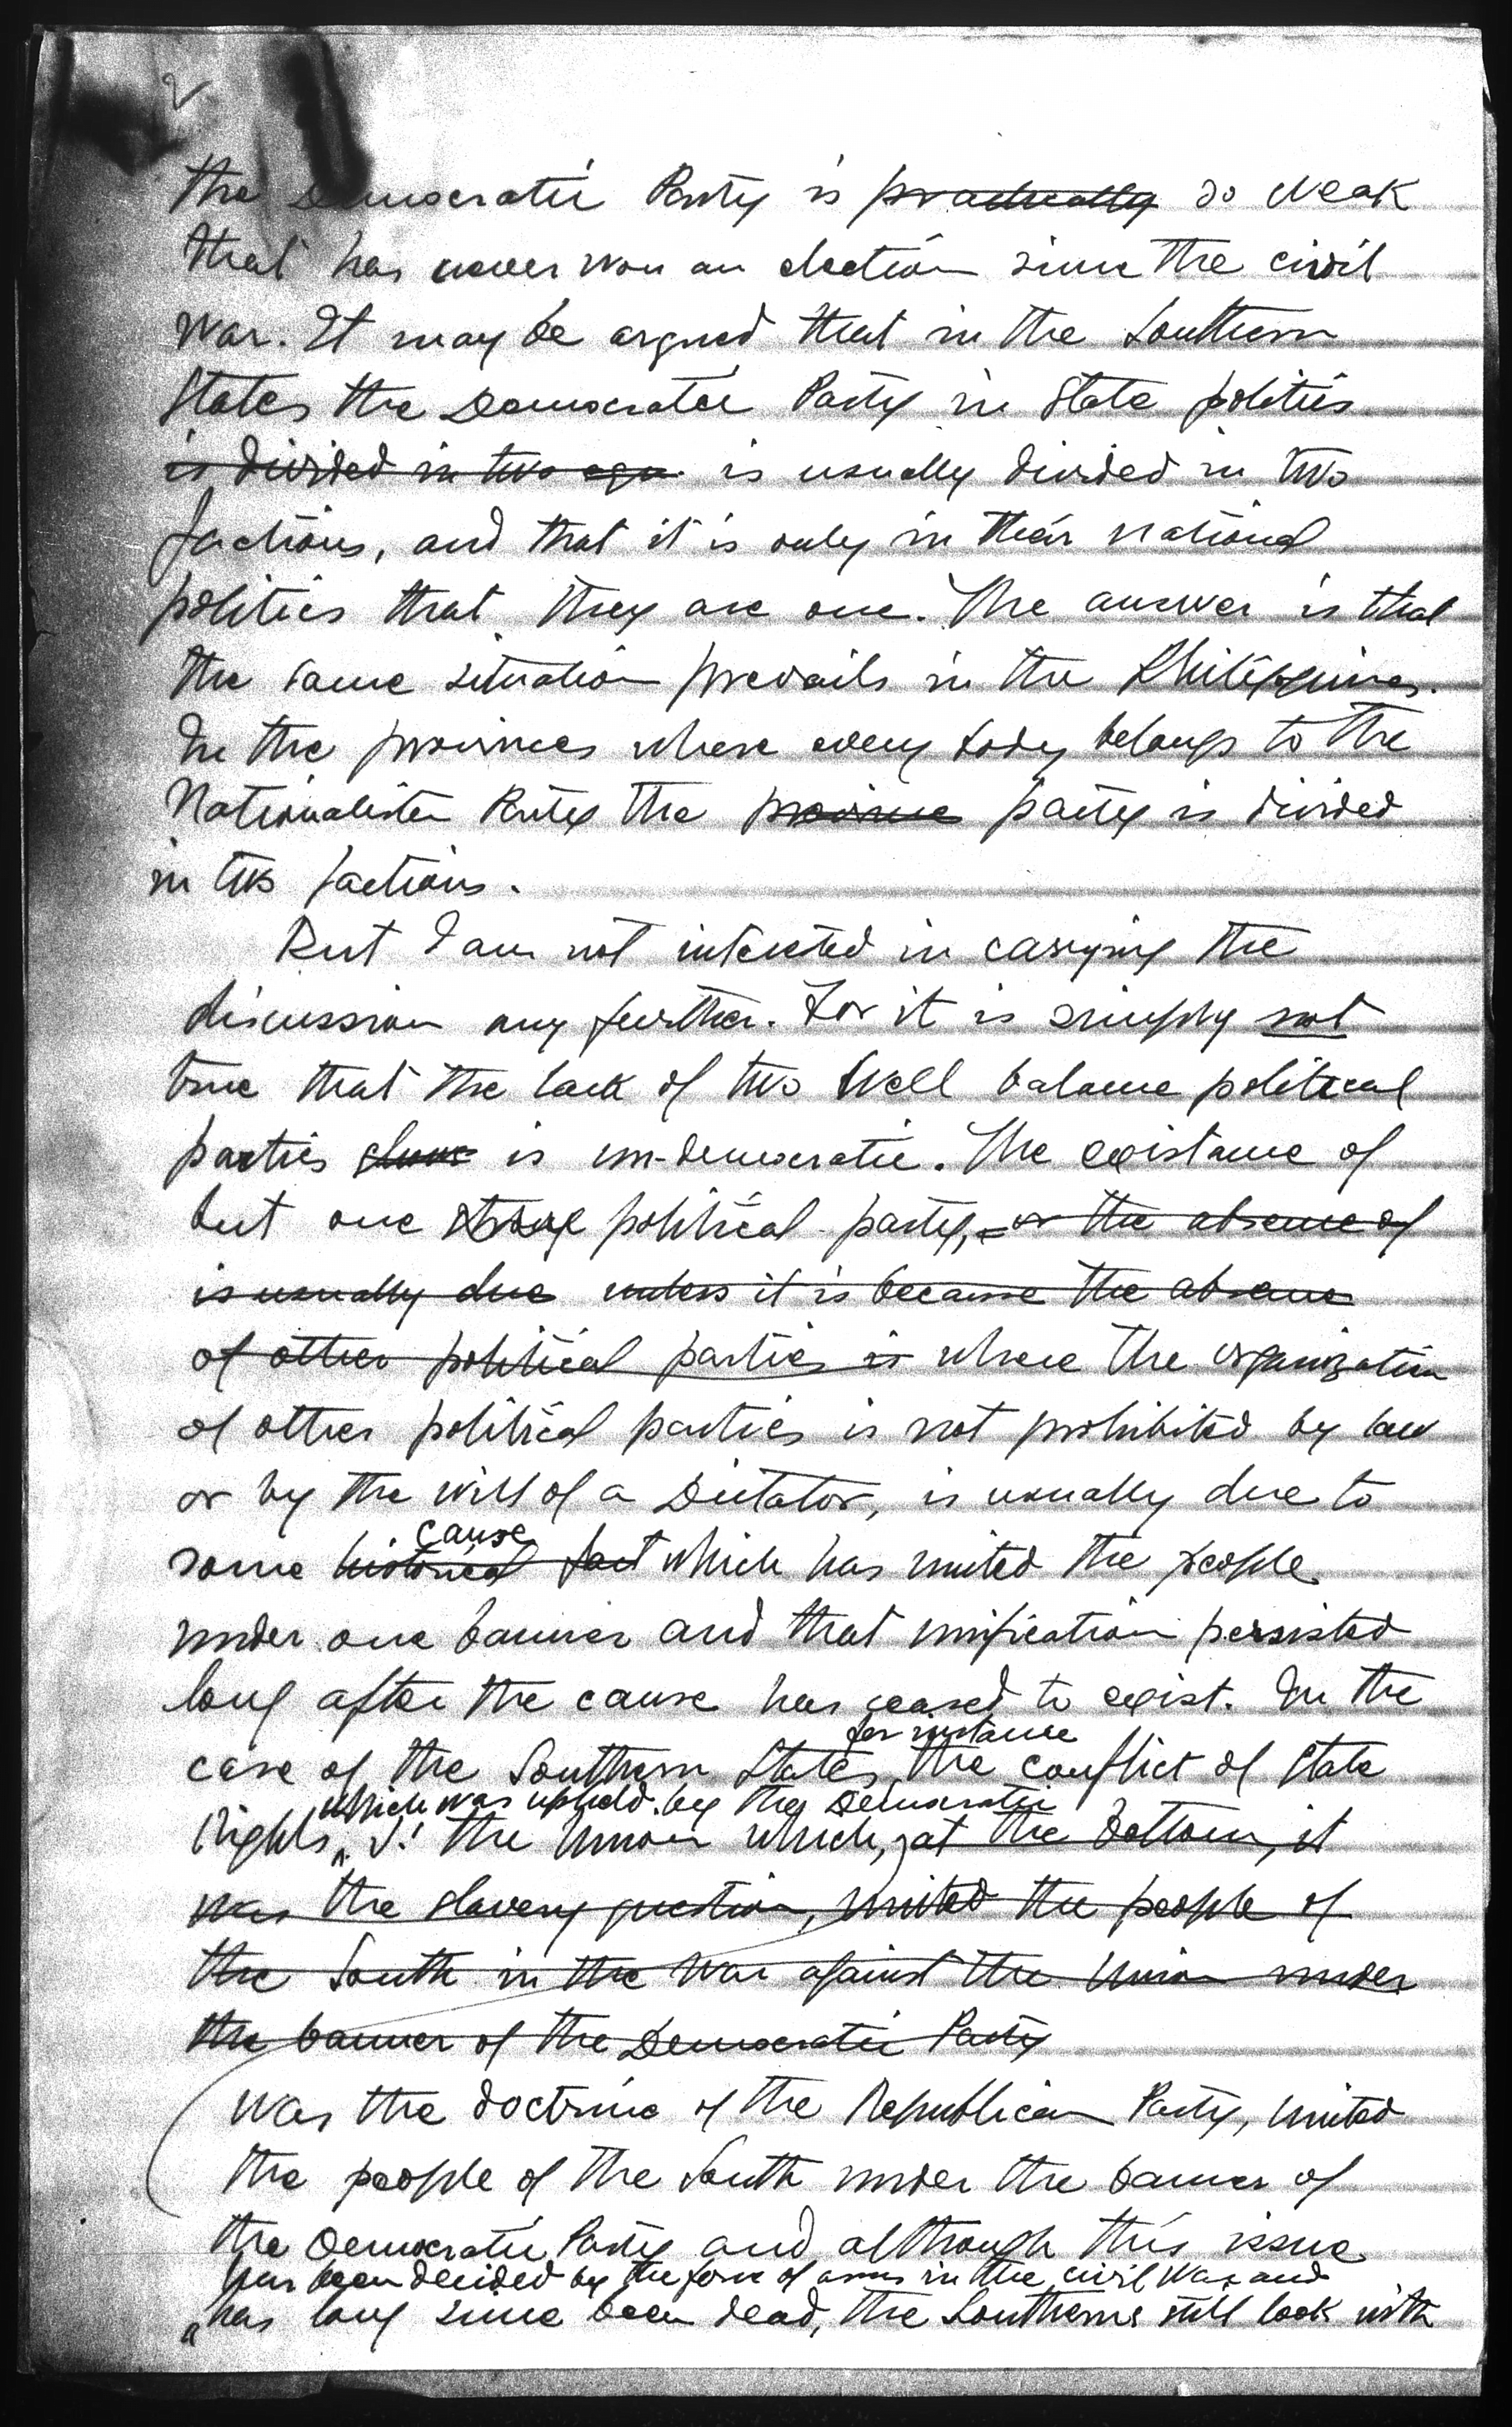 2
the Democratic Party is practically so weak
that has never won an election since the civil
war. It may be argued that in the Southern
States the Democratic Party in State politics
is divided in two equ. is usually divided in two
factions, and that it is only in their national
politics that they are one. The answer is that
the same situation prevails in the Philippines.
In the provinces where every body belongs to the
Nationalista Party the province party is divided
in two factions.
But I am not interested in carrying the
discussion any further. For it is simply not
true that the lack of two well balance political
parties is un-democratic. The existance of
but one strong political party, or the absence of
is usually due unless it is because the absence
of other political parties is where the organization
of other political parties is not prohibited by law
or by the will of a Dictator, is usually due to
cause
some historical fact which has united the people
under one banner and that unification persisted
long after the cause has ceased to exist. In the
for instance
case of the Southern States, the conflict of State
which was upheld by the Democratic
Rights v. the Union which, at the bottom, it
was the slavery question, united the people of
the South in the war against the Union under
the banner of the Democratic Party
was the doctrine of the Republican Party, united
the people of the South under the banner of
the Democratic Party and although this issue
has been decided by the force of arms in the civil war and
has long since been dead, the Southerns still look with